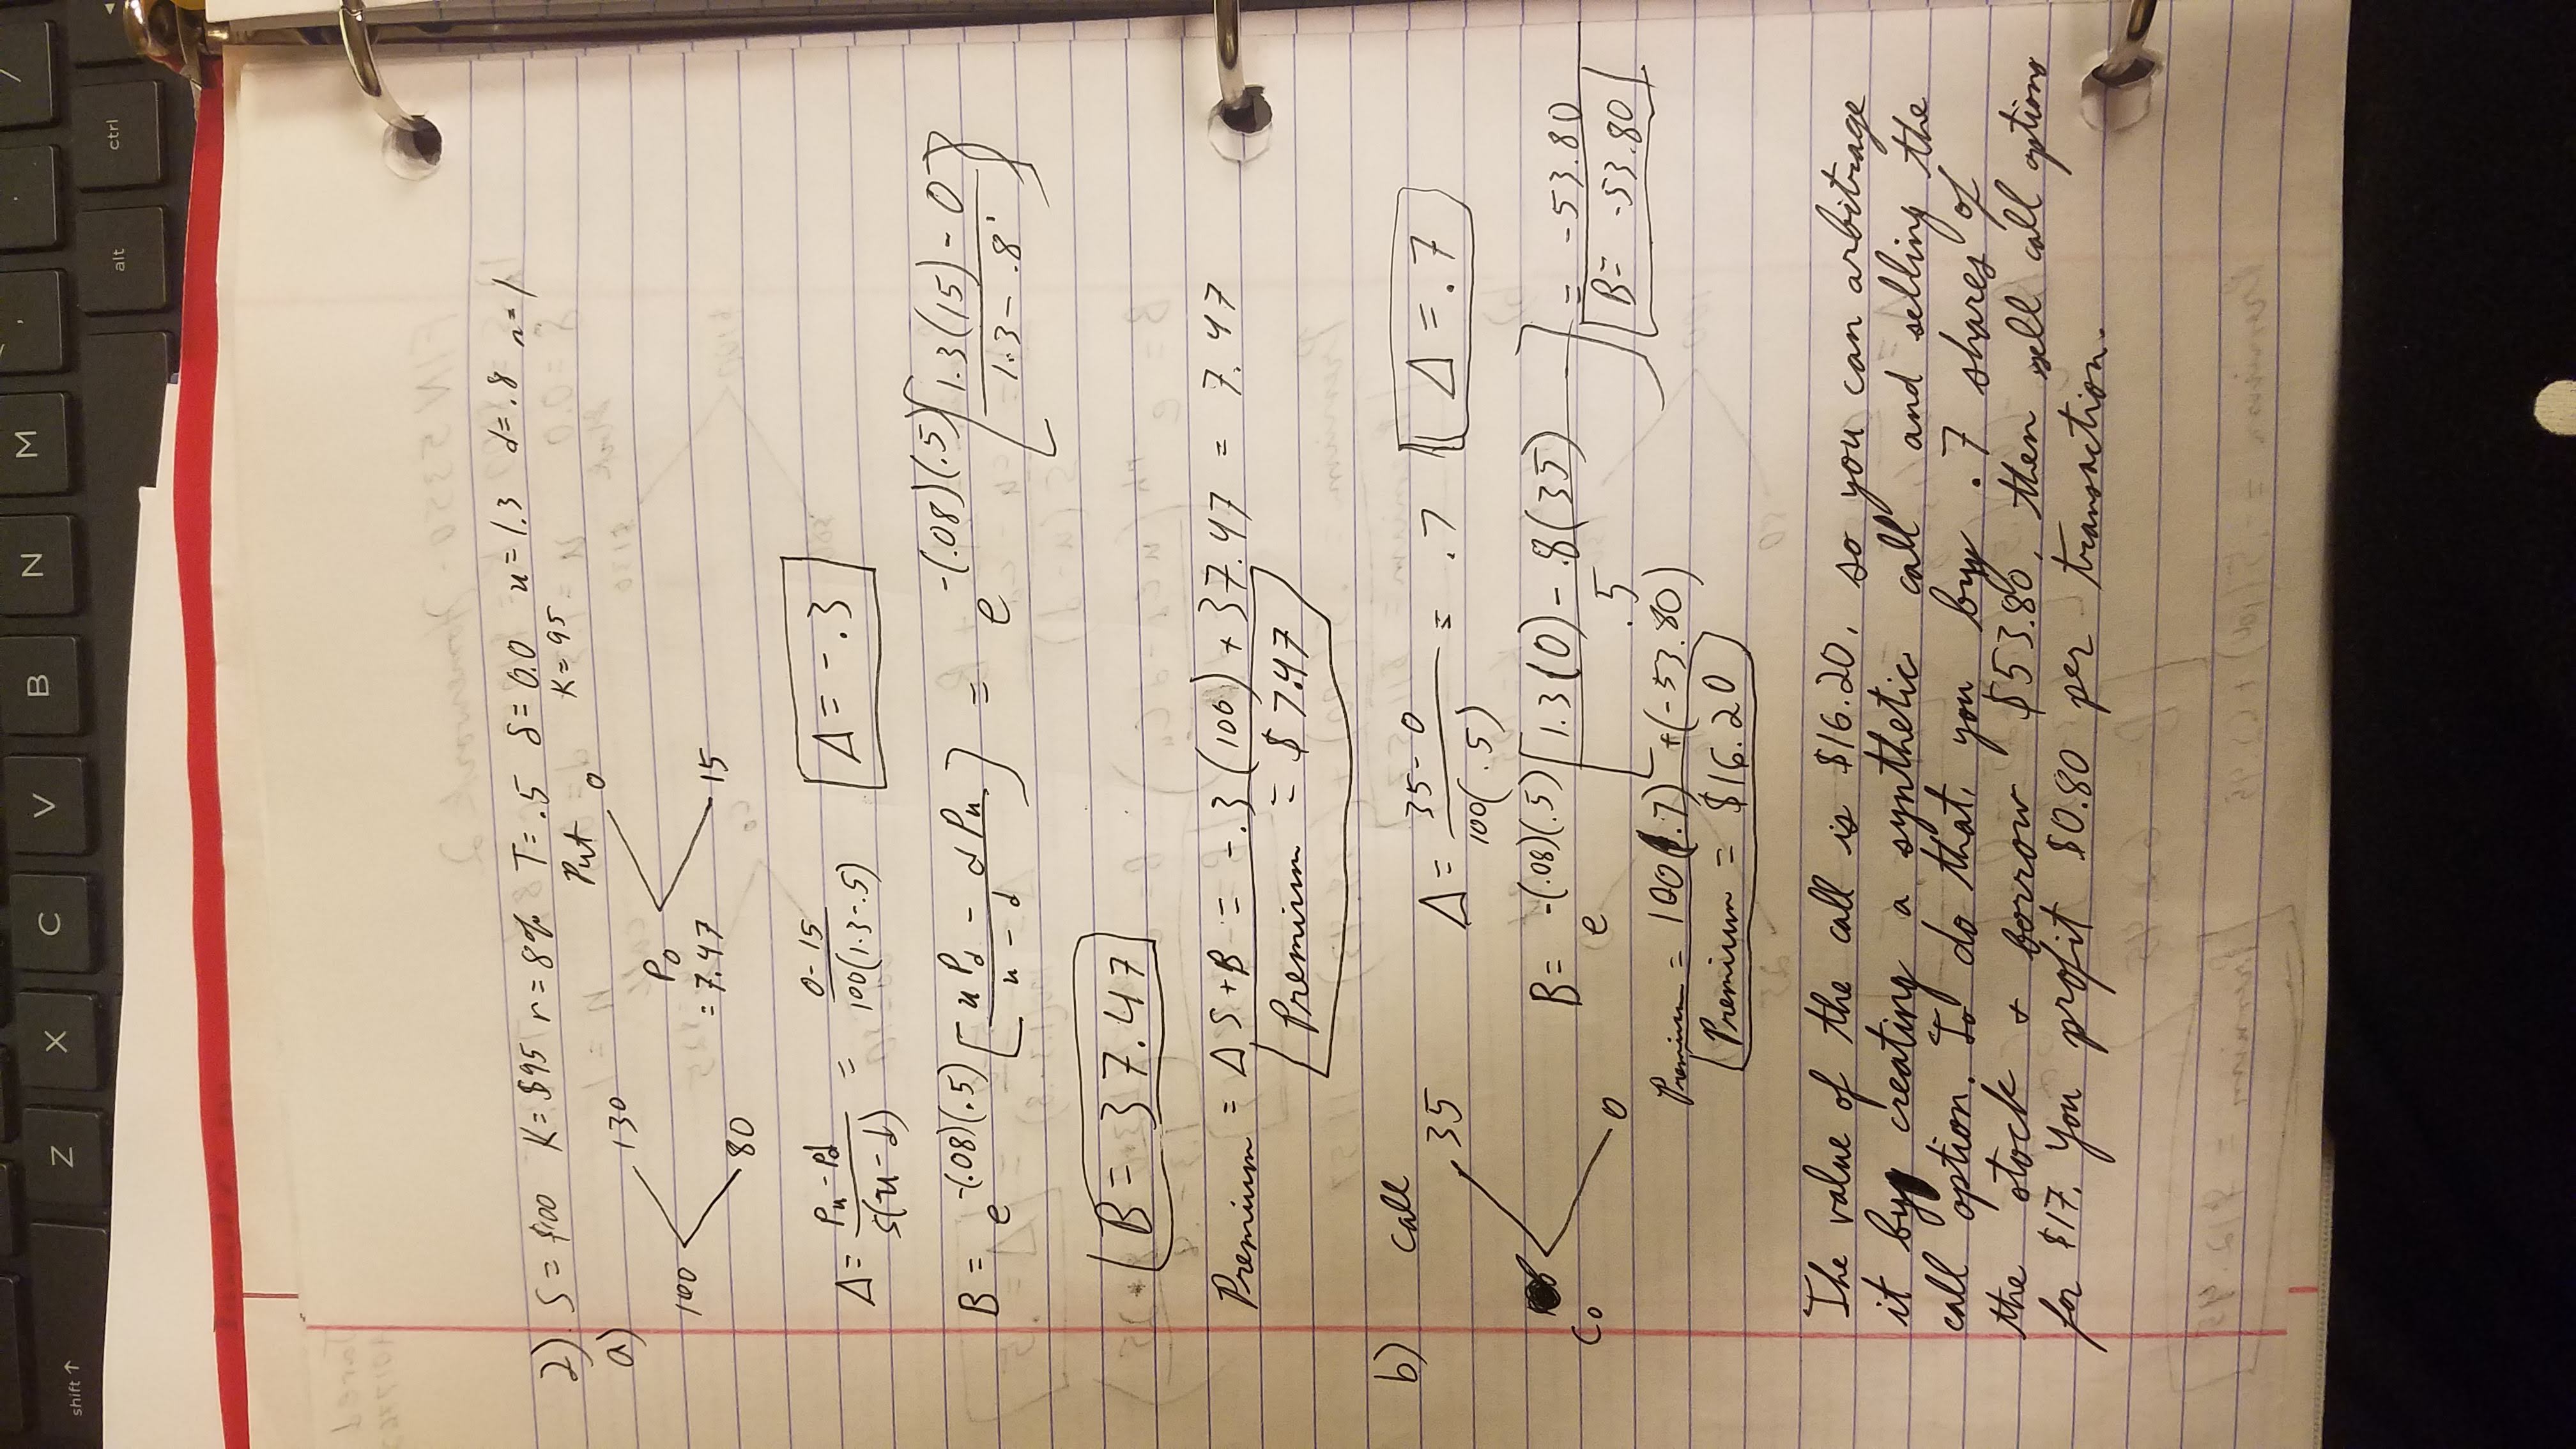 shift ↑
Z X C V B N M , . /
alt ctrl
FIN 5350 - Homework 2
2) S = $100 K = $95 r = 8% T = .5 δ = 0.0 u = 1.3 d = .8 n = 1
Put K = 95
a)
130
100
80
0
P0
= 7.47
15
Δ = Pu - Pd / S(u - d) = 0 - 15 / 100(1.3 - .5) Δ = -.3
B = e^-(.08)(.5) [u Pd - d Pu / u - d] = e^-(.08)(.5) [1.3(15) - 0 / 1.3 - .8]
B = 37.47
Premium = Δ S + B = -.3 (100) + 37.47 = 7.47
Premium = $7.47
b) Call
35
C0
0
Δ = 35 - 0 / 100(.5) = .7 Δ = .7
B = e^-(.08)(.5) [1.3(0) - .8(35) / .5] = -53.80
B = -53.80
Premium = 100(.7) + (-53.80)
Premium = $16.20
The value of the call is $16.20, so you can arbitrage
it by creating a synthetic call and selling the
call option. To do that, you buy .7 shares of
the stock + borrow $53.80, then sell call options
for $17. You profit $0.80 per transaction.